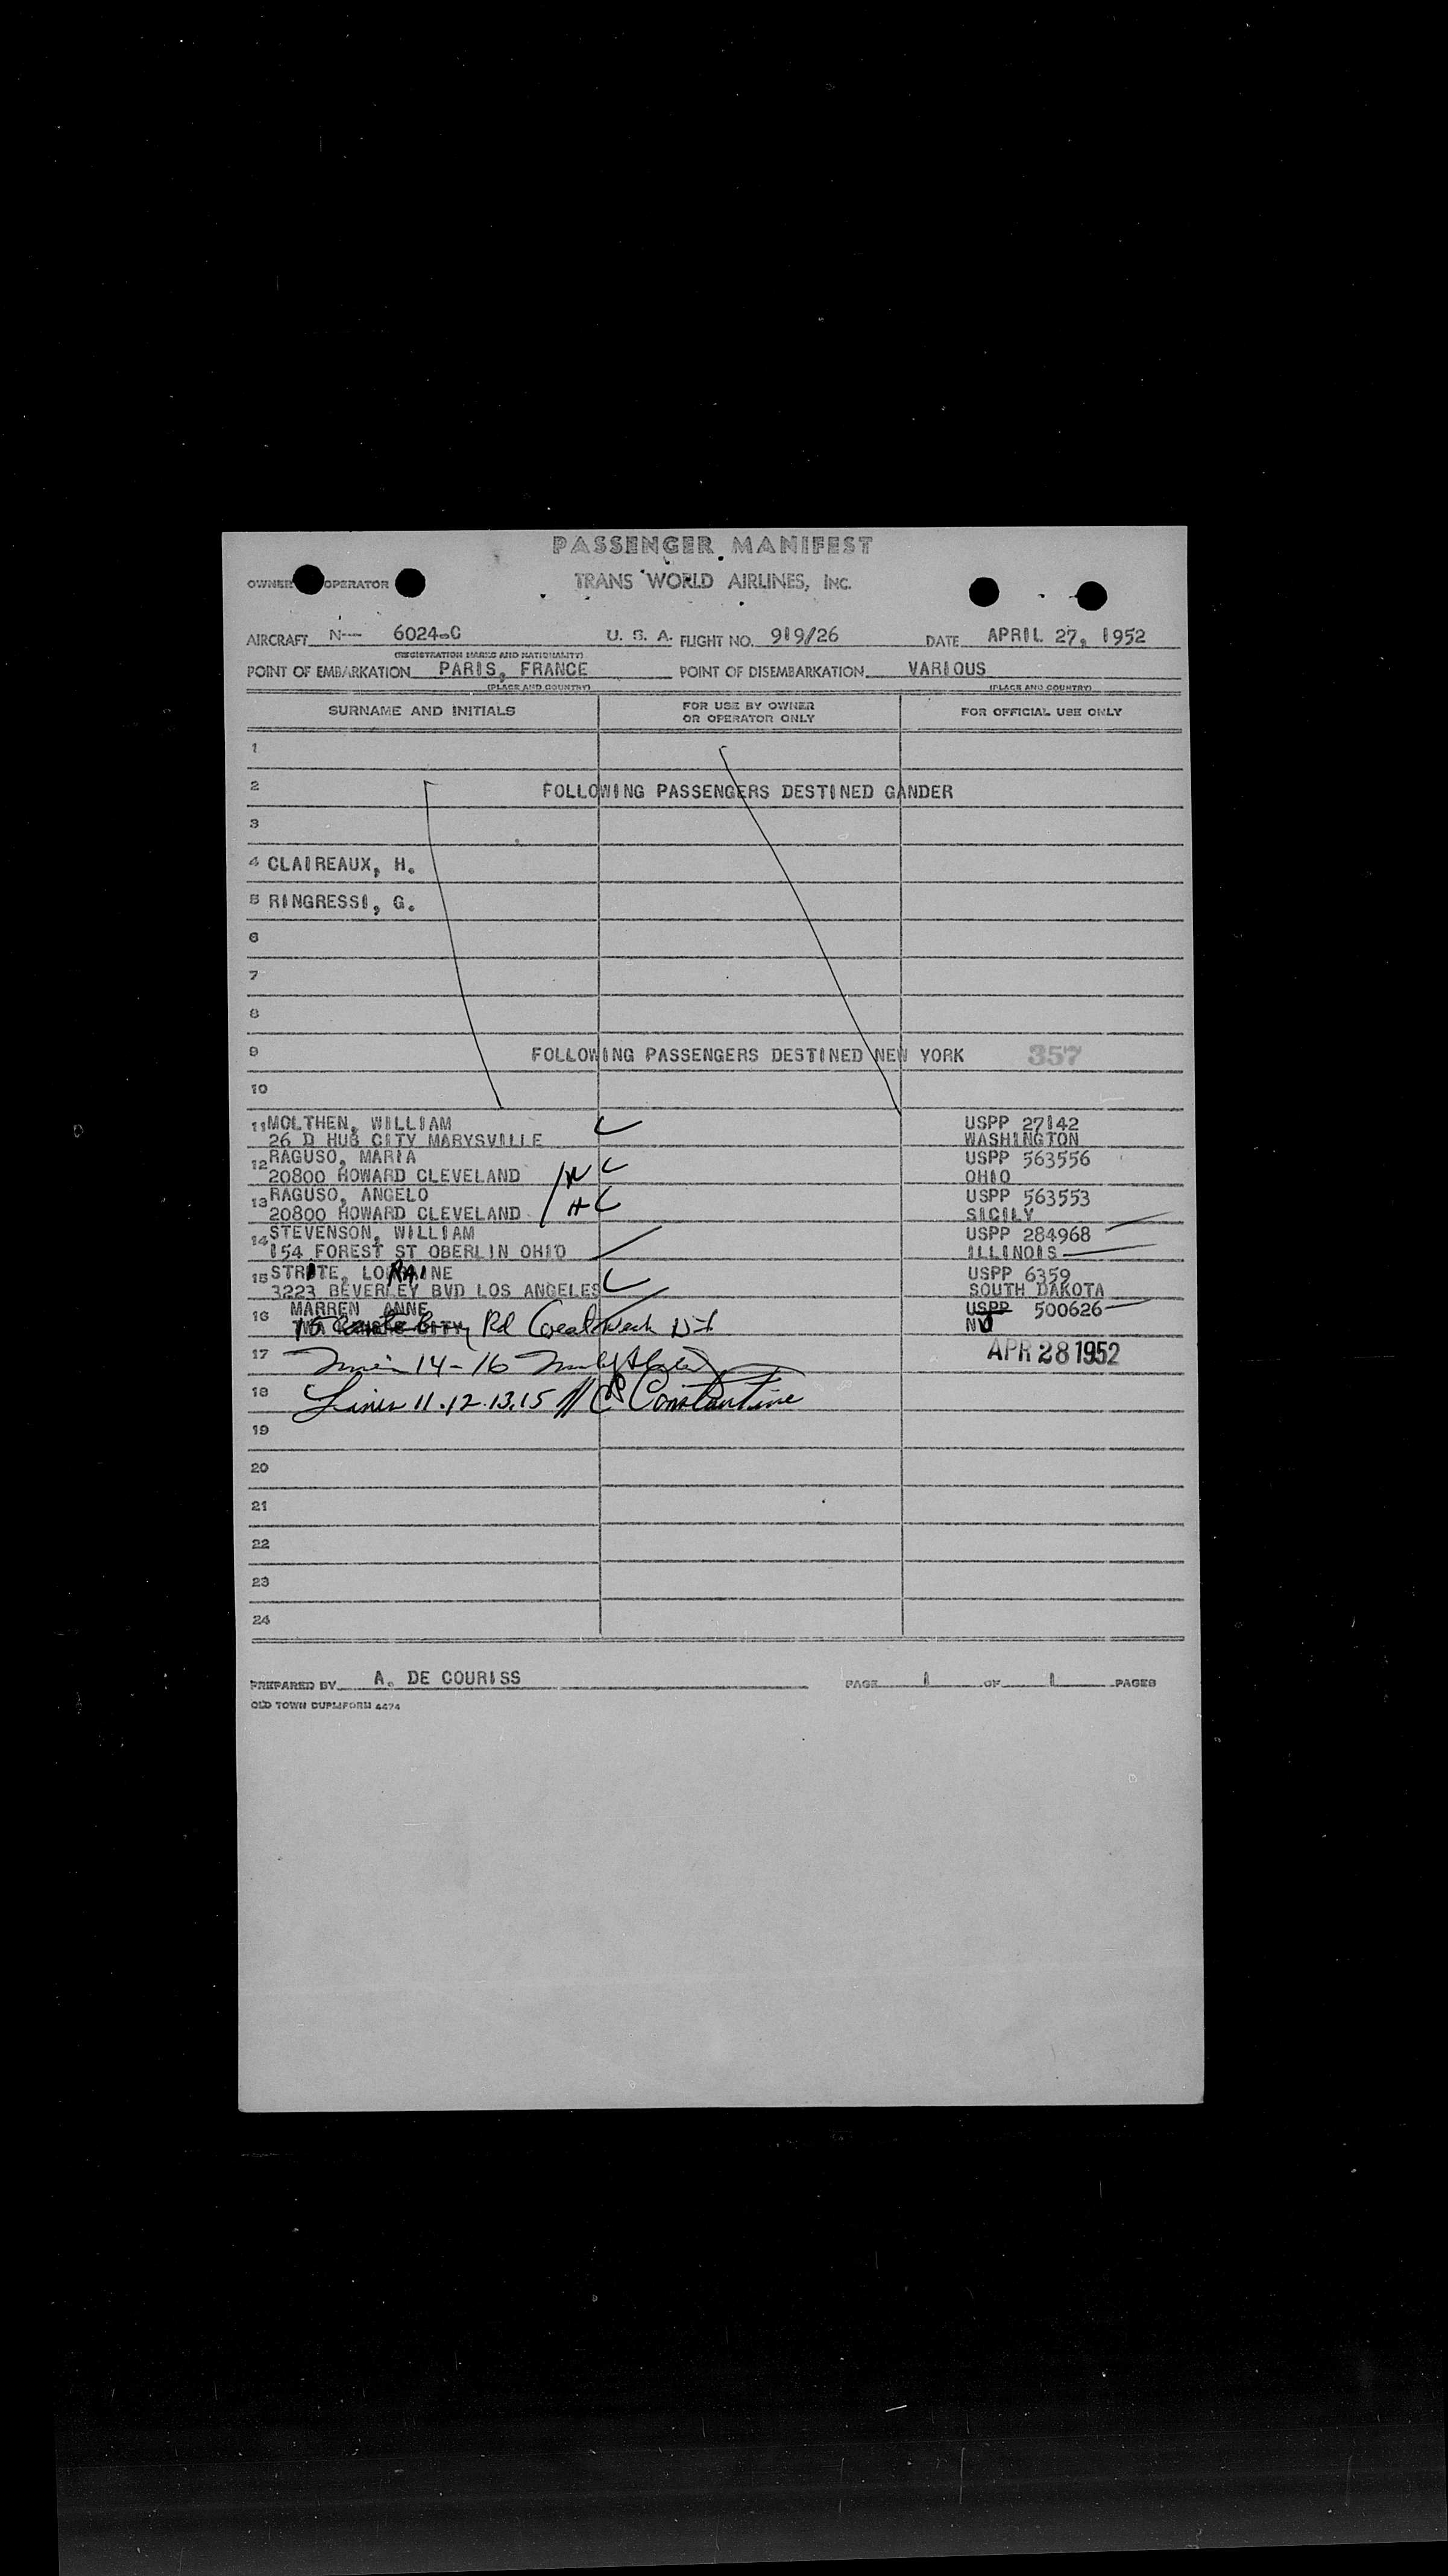 PASSENGER MANIFEST
OWNER OPERATOR TRANS WORLD AIRLINES, INC.
AIRCRAFT N--- 6024-C U. S. A. FLIGHT NO. 919/26 DATE APRIL 27, 1952
(REGISTRATION MARKS AND NATIONALITY)
POINT OF EMBARKATION PARIS, FRANCE POINT OF DISEMBARKATION VARIOUS
(PLACE AND COUNTRY) (PLACE AND COUNTRY)
SURNAME AND INITIALS FOR USE BY OWNER OR OPERATOR ONLY FOR OFFICIAL USE ONLY
1
2 FOLLOWING PASSENGERS DESTINED GANDER
3
4 CLAIREAUX, H.
5 RINGRESSI, G.
6
7
8
9 FOLLOWING PASSENGERS DESTINED NEW YORK 357
10
11 MOLTHEN, WILLIAM USPP 27142
26 D HUB CITY MARYSVILLE WASHINGTON
12 RAGUSO, MARIA USPP 563556
20800 HOWARD CLEVELAND OHIO
13 RAGUSO, ANGELO USPP 563553
20800 HOWARD CLEVELAND H SICILY
14 STEVENSON, WILLIAM USPP 284968
154 FOREST ST OBERLIN OHIO ILLINOIS
15 STRITE, LORRAINE USPP 6359
3223 BEVERLEY BVD LOS ANGELES SOUTH DAKOTA
16 MARREN ANNE USPP 500626
15 Rd NJ
17 14-16 APR 28 1952
18 Lines 11.12.13.15 Constantine
19
20
21
22
23
24
PREPARED BY A. DE COURISS PAGE 1 OF 1 PAGES
OLD TOWN DUPLIFORM 4474